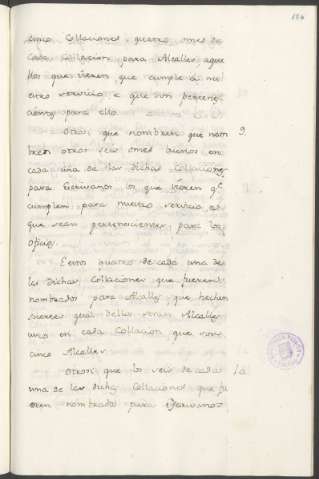 184
cinco Collaciones, quatro omes de
cada Collacion para Alcalles aque
llos que vieren que cumple a nu
estro servicio e que son pertene
cientes para ello
Otrosi que nombren que nom 9.
bren otros seis omes buenos en
cada una de las dichas Collaciones
para Escrivanos los que vieren q.e
cumplen para nuestro servicio e
que sean pertenecientes para los
oficios.
E estos quatro de cada una de
las Dichas Collaciones que fueren
nombrados para Alcalles que hechen
suertes qual dellos seran Alcalles
uno en cada Collacion que son
cinco Alcalles.
Otrosi que los seis de cada 10
una de las dichas Collaciones que fu
eren nombrados para Escrivanos